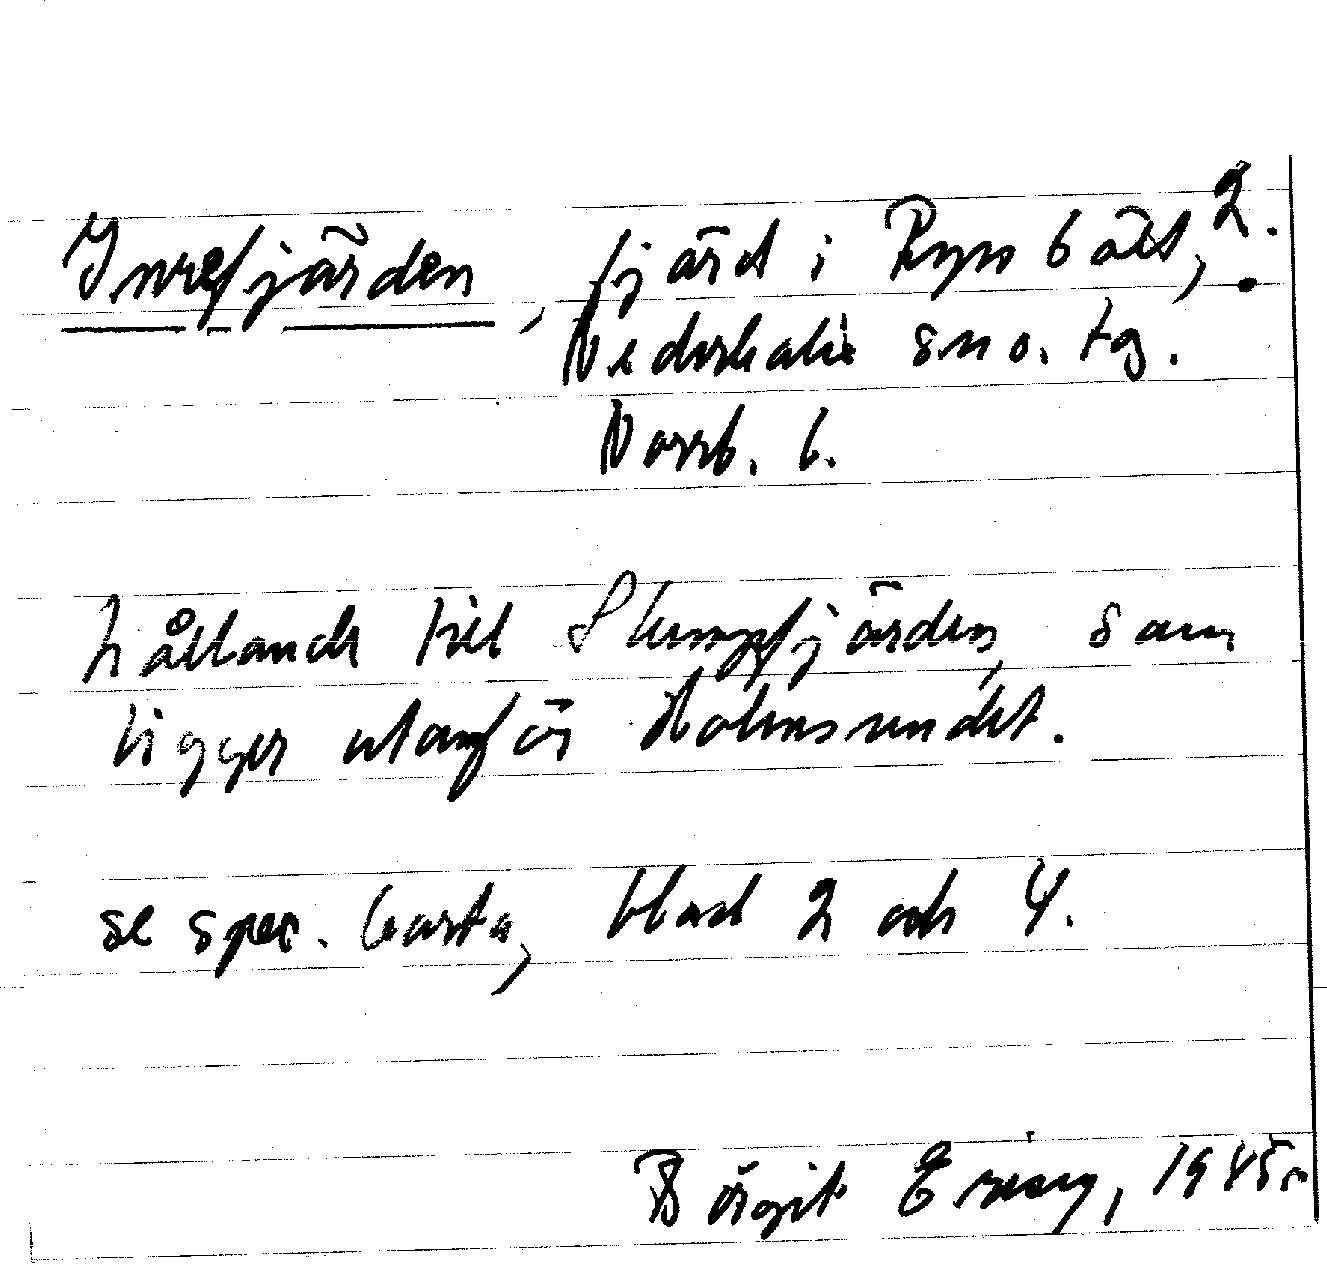 Inrefjärden, fjärd i Ryssbält, 2.
Nederkalix sn o. tg.
Norrb. l.
hållande till Stumpfjärden, som
ligger utanför Holmsundet.
se spec. karta, blad 2 och 4.
Börgit Ering, 1945.